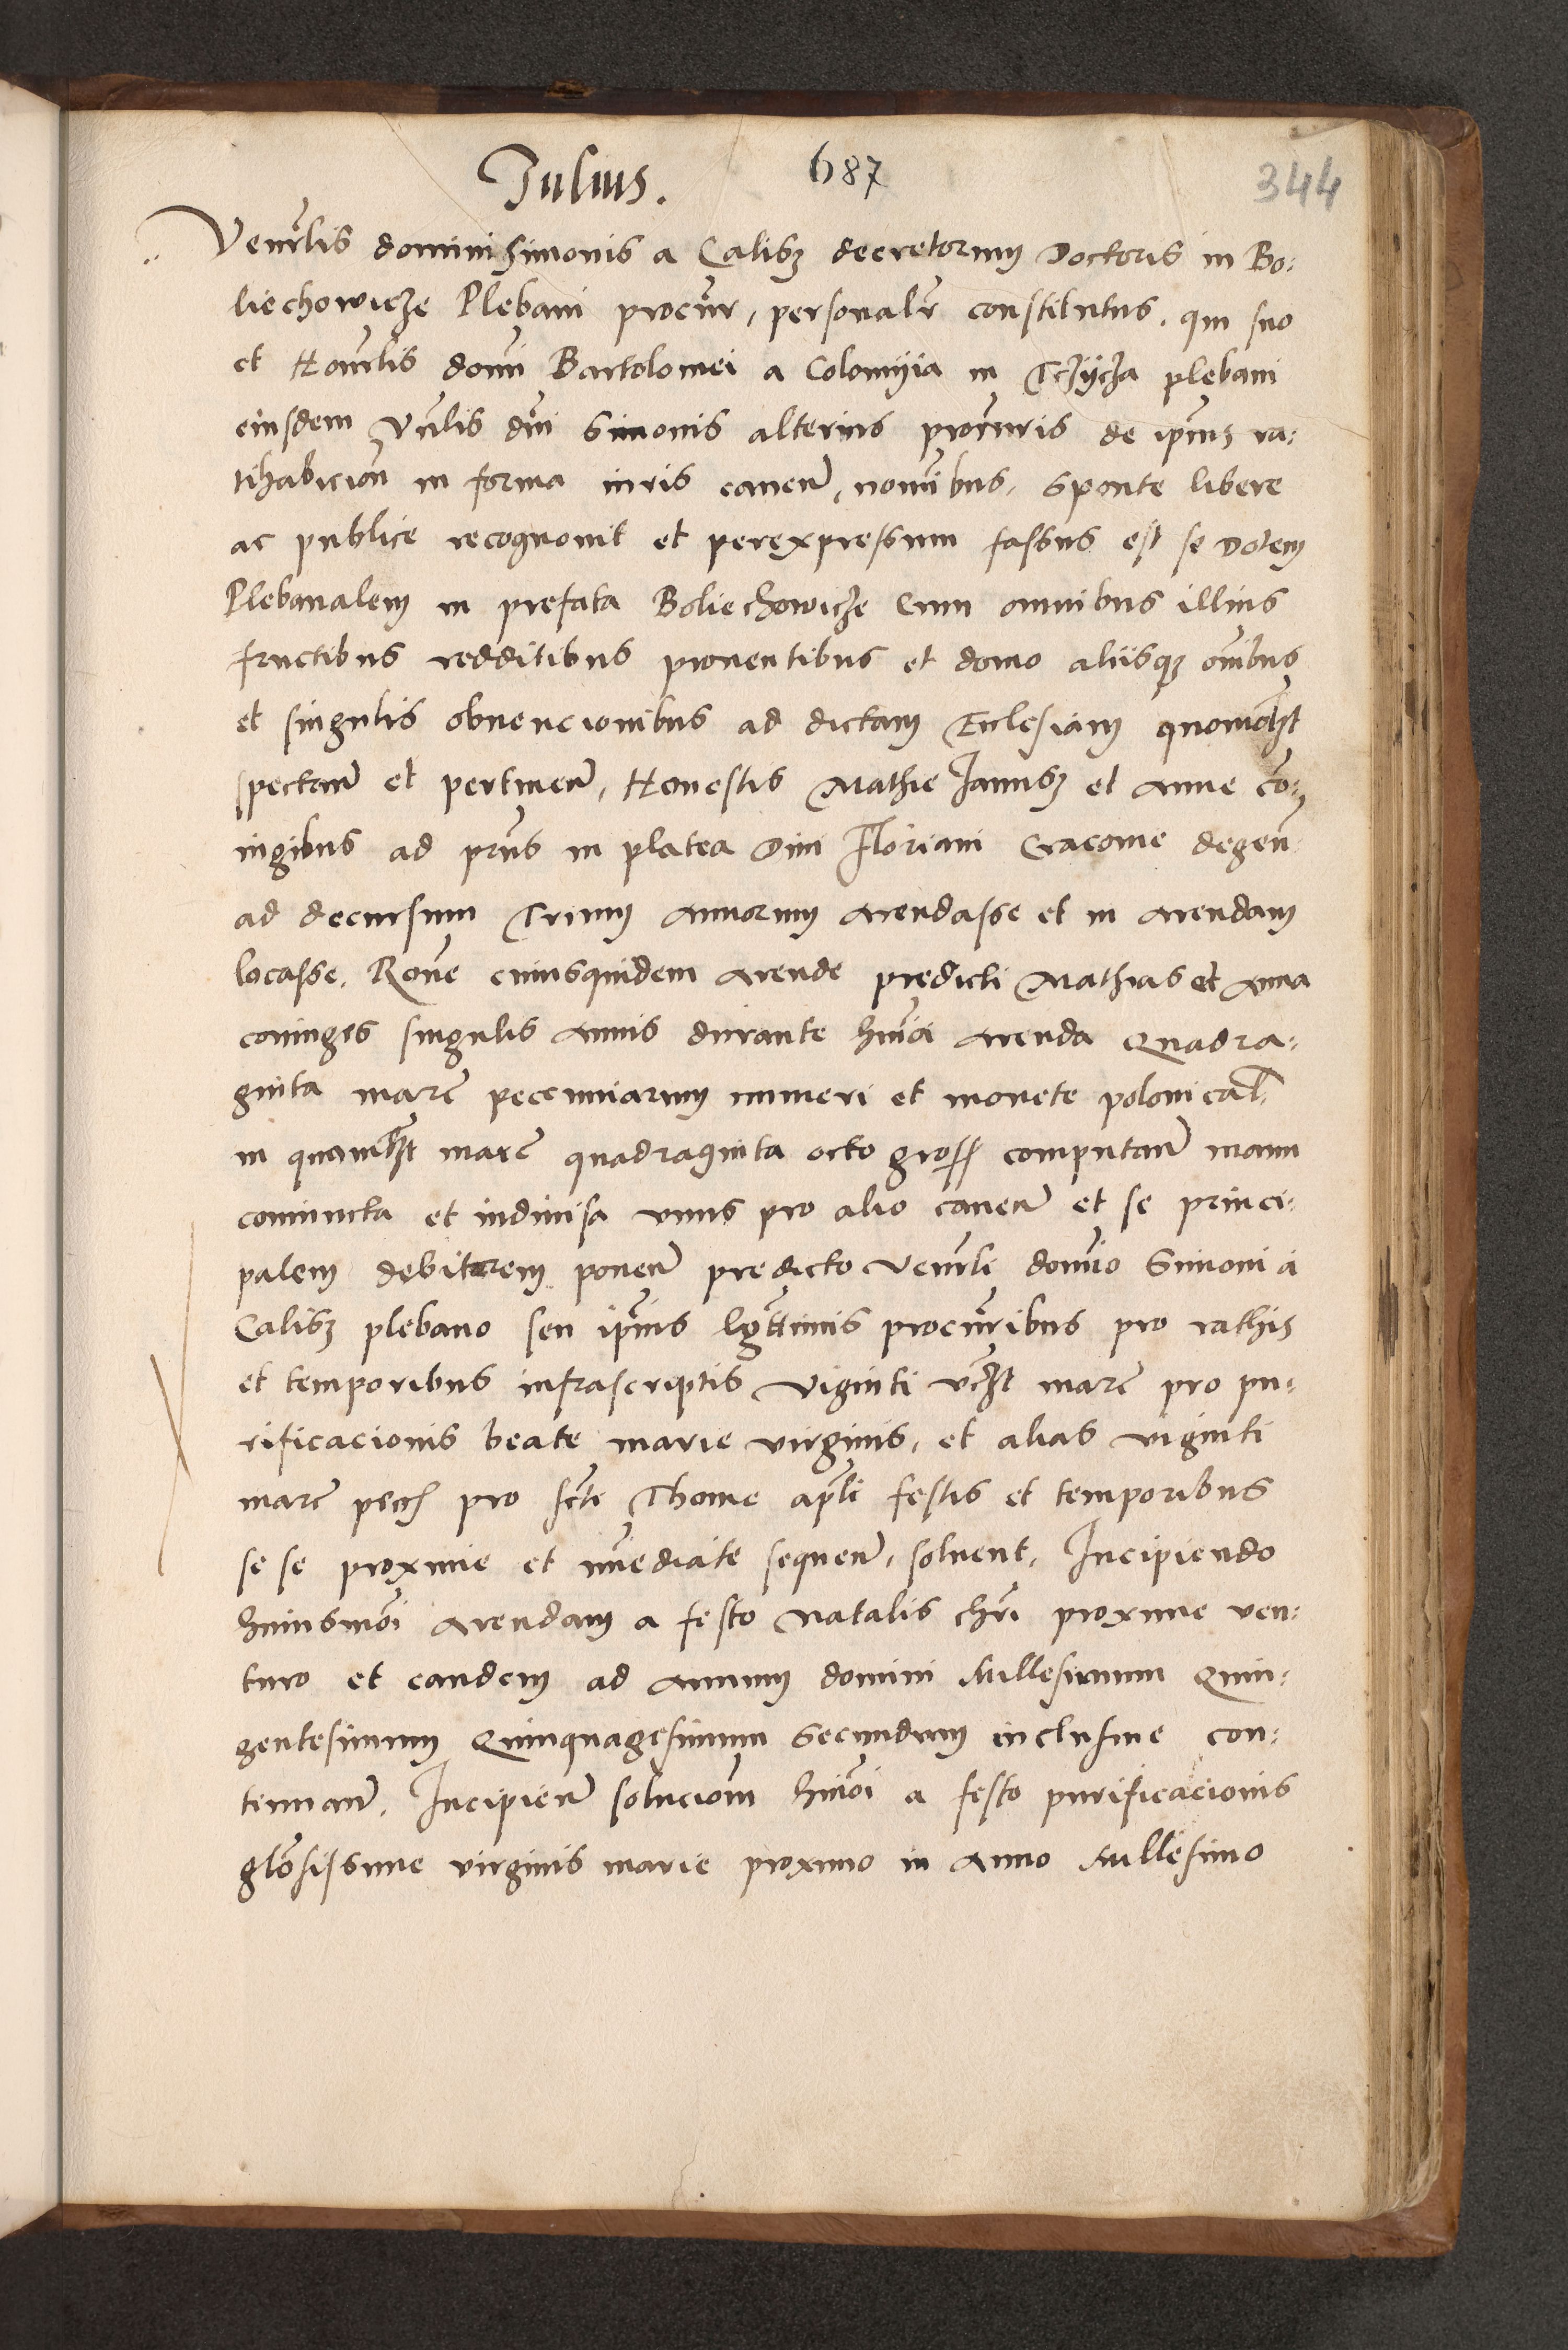 Julius. 687 344
Venrlis domini Simonis a Calisz decretorum Doctoris in Bo:
liechowicze Plebani procur, personalr constitutus. qui suo
et Honrlis domi Bartolomei a Colomyia in Tczycza plebani
eiusdem Vnlis dni Simonis alterius procuris de ipius ra:
tihabicion in forma iuris cauen, nominibus, sponte libere
ac publice recognouit et per expressum fassus est se Dotem
Plebanalem in prefata Boliechowicze Cum omnibus illius
fructibus redditibus prouentibus et domo aliisqz omibus
et singulis obuencionibus ad dictam Ecclesiam quomolzt
spectan et pertinen, Honestis Mathie Janusz et Anne Co:
niugibus ad prns in platea Diui Floriani Cracouie degen
ad decursum Trium Annorum Arendasse et in Arendam
locasse. Rone cuiusquidem Arende predicti Mathias et Anna
coniuges singulis Annis durante hmoi Arenda Quadra:
ginta marc pecuniarum numeri et monete polonical
in quamlzt marc quadraginta octo gross computan manu
coniuncta et indiuisa vnus pro alio cauen et se princi:
palem debitorem ponen predicto Venrli domino Simoni a
Calisz plebano seu ipius lgttimis procuribus pro rathis
et temporibus infrascriptis Viginti vczt marc pro pu:
rificacionis beate marie virginis, et alias viginti
marc pecc pro scti Thome apli festis et temporibus
se se proxime et imediate sequen, soluent, Incipiendo
huiusmoi Arendam a festo Natalis chri proxime ven:
turo et eandem ad Annum domini Millesimum Quin:
gentesimum Quinquagesimum Secundum inclusiue con:
tinuan. Incipien solucionem hmoi a festo purificacionis
glosissime virginis marie proximo in Anno Millesimo